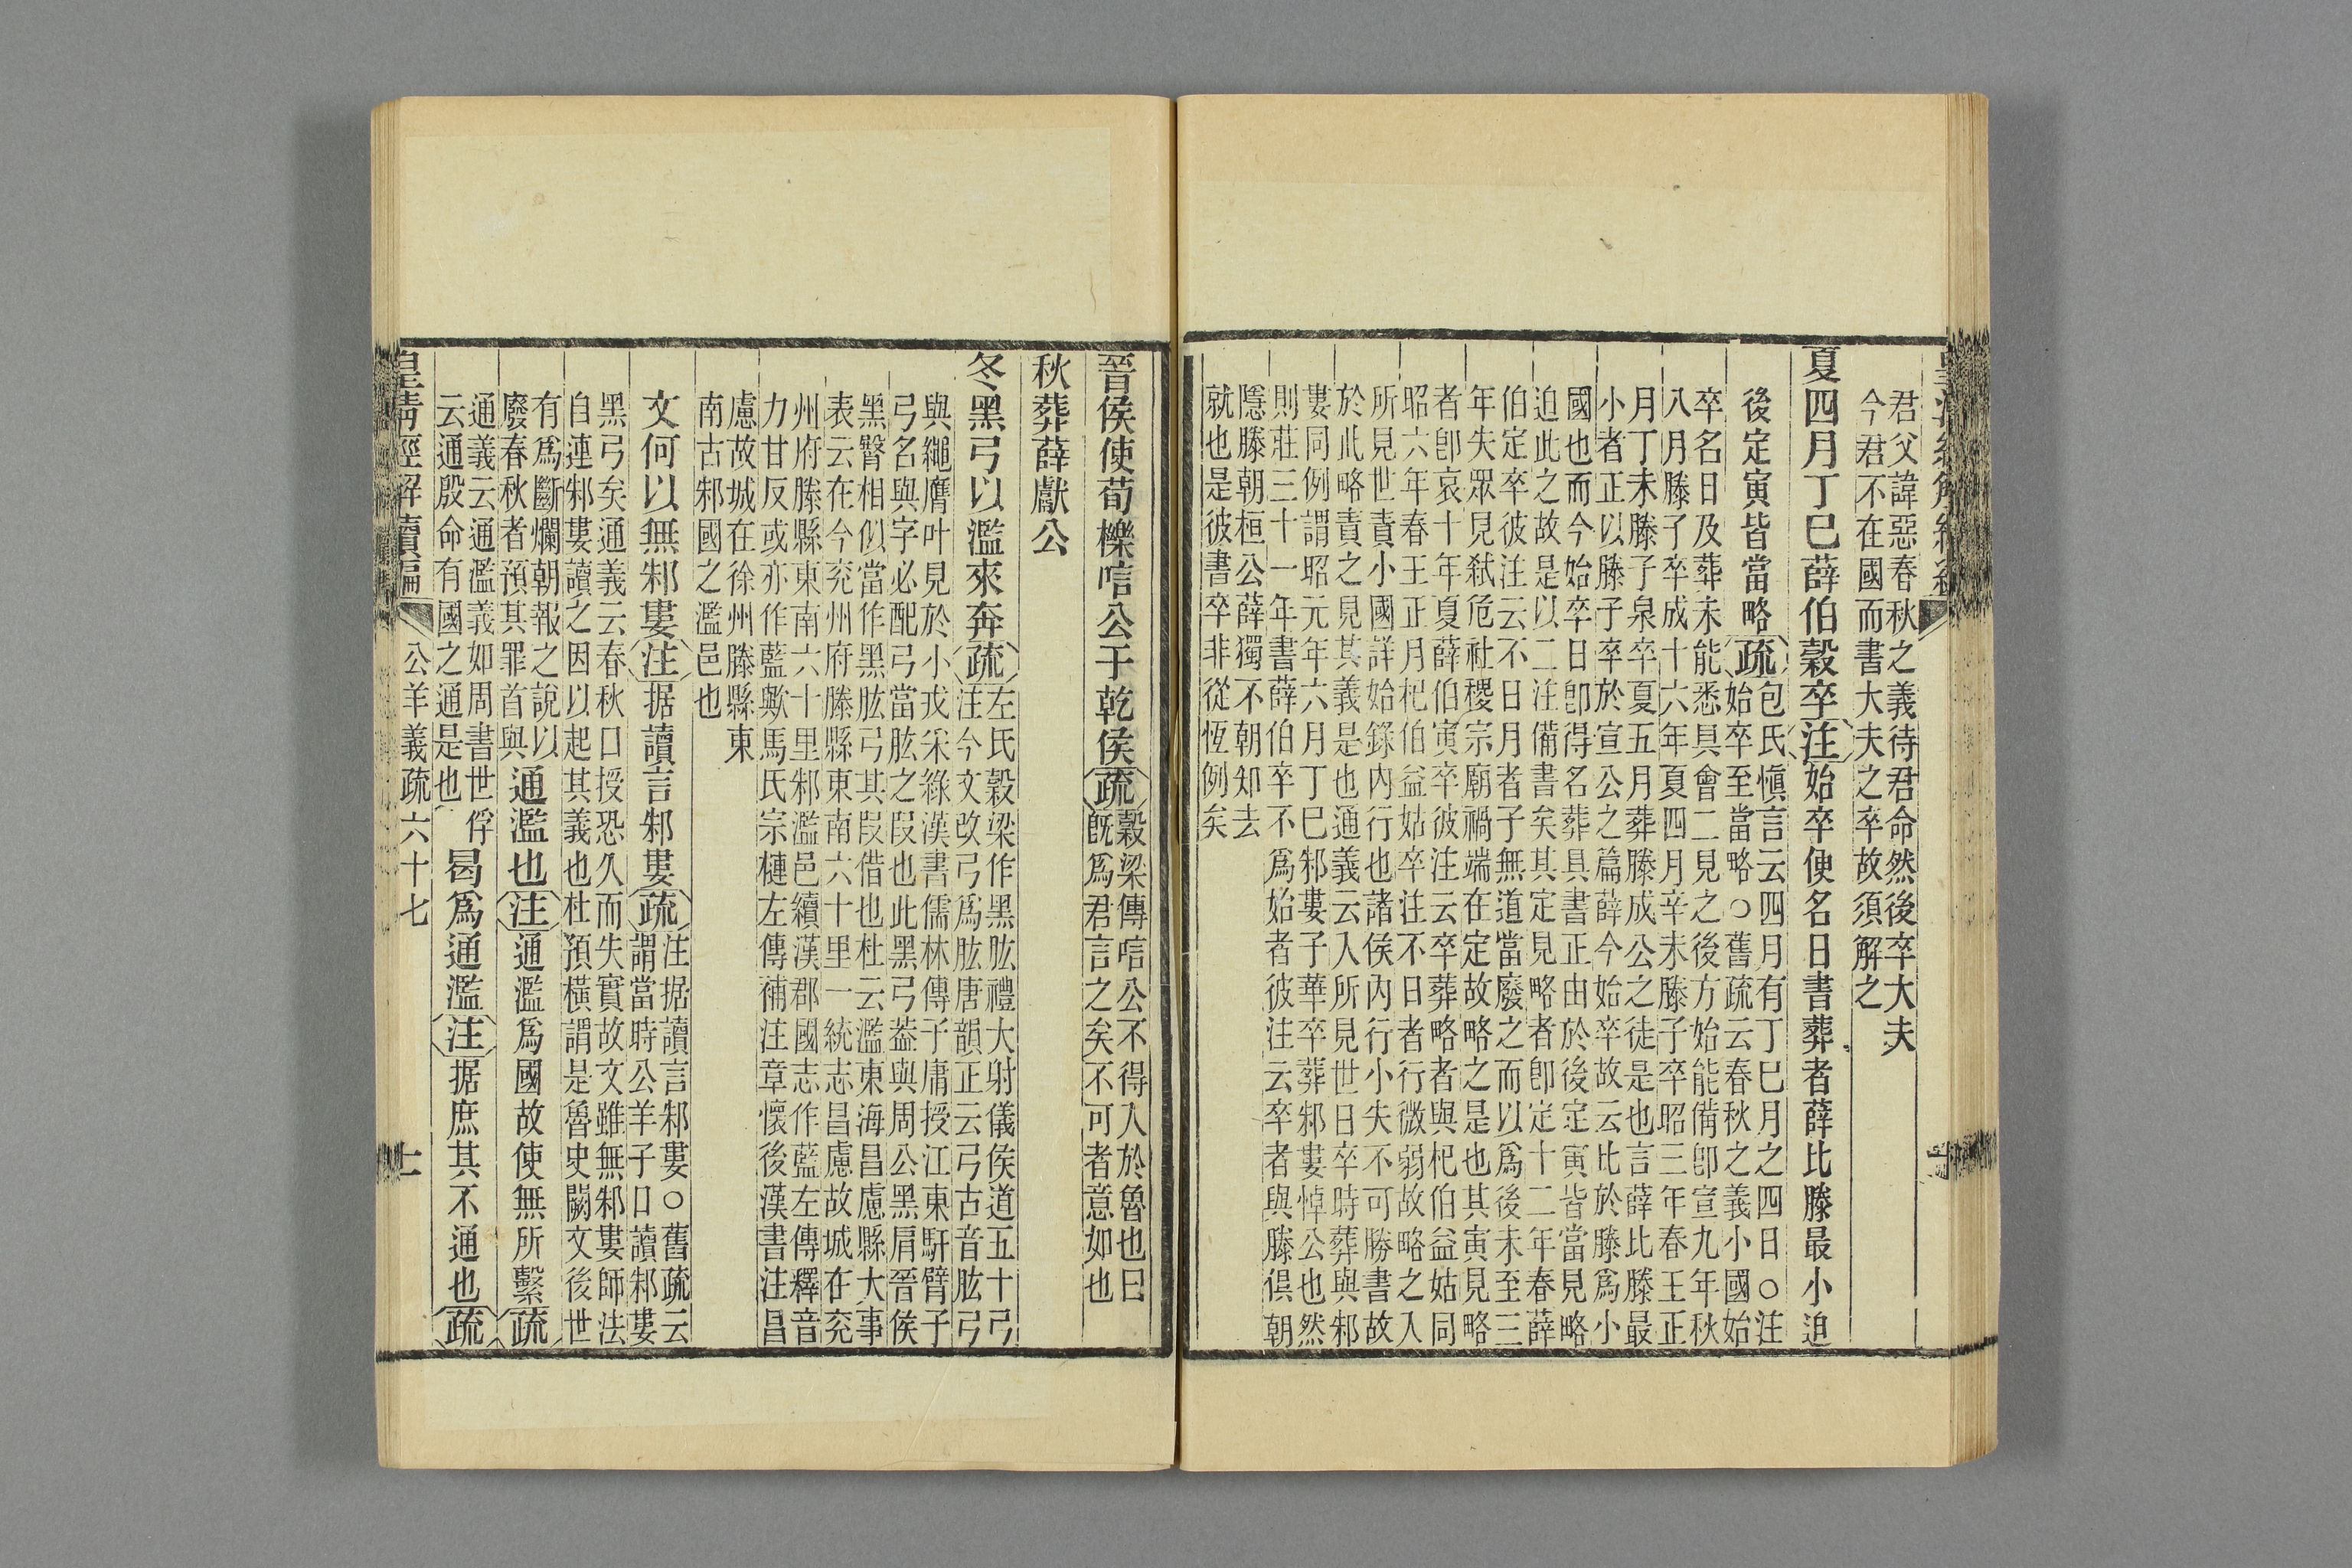 君父諱惡春秋之義待君命然後卒大夫
今君不在國而書大夫之卒故須解之
夏四月丁巳薛伯穀卒注始卒便名日書葬者薛比滕最小迫
後定寅皆當略疏
包氏愼言云四月有丁巳月之四日○注
始卒至當略○舊疏云春秋之義小國始
卒名日及葬未能悉具會二見之後方始能備卽宣九年秋
八月滕子卒成十六年夏四月辛未滕子卒昭三年春王正
月丁未滕子泉卒夏五月葬滕成公之徒是也言薛比滕最
小者正以滕子卒於宣公之篇薛今始卒故云比於滕爲小
國也而今始卒日卽得名葬具書正由於後定寅皆當見略
迫此之故是以二注備書矣其定見略者卽定十二年春薛
伯定卒彼注云不日月者子無道當廢之而以爲後未至三
年失眾見弒危社稷宗廟禍端在定故略之是也其寅見略
者卽哀十年夏薛伯寅卒彼注云卒葬略者與杞伯益姑同
昭六年春王正月杞伯益姑卒注不日者行微弱故略之入
所見世責小國詳始錄內行也諸侯內行小失不可勝書故
於此略責之見其義是也通義云入所見世日卒時葬與邾
婁同例謂昭元年六月丁巳邾婁子華卒葬邾婁悼公也然
則莊三十一年書薛伯卒不爲始者彼注云卒者與滕俱朝
隱滕朝桓公薛獨不朝知去
就也是彼書卒非從恆例矣
晉侯使荀櫟唁公于乾侯疏
穀梁傳唁公不得入於魯也曰
旣爲君言之矣不可者意如也
秋葬薛獻公
冬黑弓以濫來奔疏
左氏穀梁作黑肱禮大射儀侯道五十弓
注今文改弓爲肱唐韻正云弓古音肱弓
與繩膺叶見於小戎采綠漢書儒林傳子庸授江東馯臂子
弓名與字必配弓當肱之叚也此黑弓葢與周公黑肩晉侯
黑臀相似當作黑肱弓其叚借也杜云濫東海昌慮縣大事
表云在今兖州府滕縣東南六十里一統志昌慮故城在兖
州府滕縣東南六十里邾濫邑續漢郡國志作藍左傳釋音
力甘反或亦作藍歟馬氏宗槤左傳補注章懷後漢書注昌
慮故城在徐州滕縣東
南古邾國之濫邑也
文何以無邾婁注据讀言邾婁疏
注据讀言邾婁○舊疏云
謂當時公羊子口讀邾婁
黑弓矣通義云春秋口授恐久而失實故文雖無邾婁師法
自連邾婁讀之因以起其義也杜預橫謂是魯史闕文後世
有爲斷爛朝報之說以
廢春秋者預其罪首與
通濫也注通濫爲國故使無所繫疏
通義云通濫義如周書世俘
云通殷命有國之通是也
曷爲通濫注据庶其不通也疏
皇淸經解續編
公羊義疏六十七